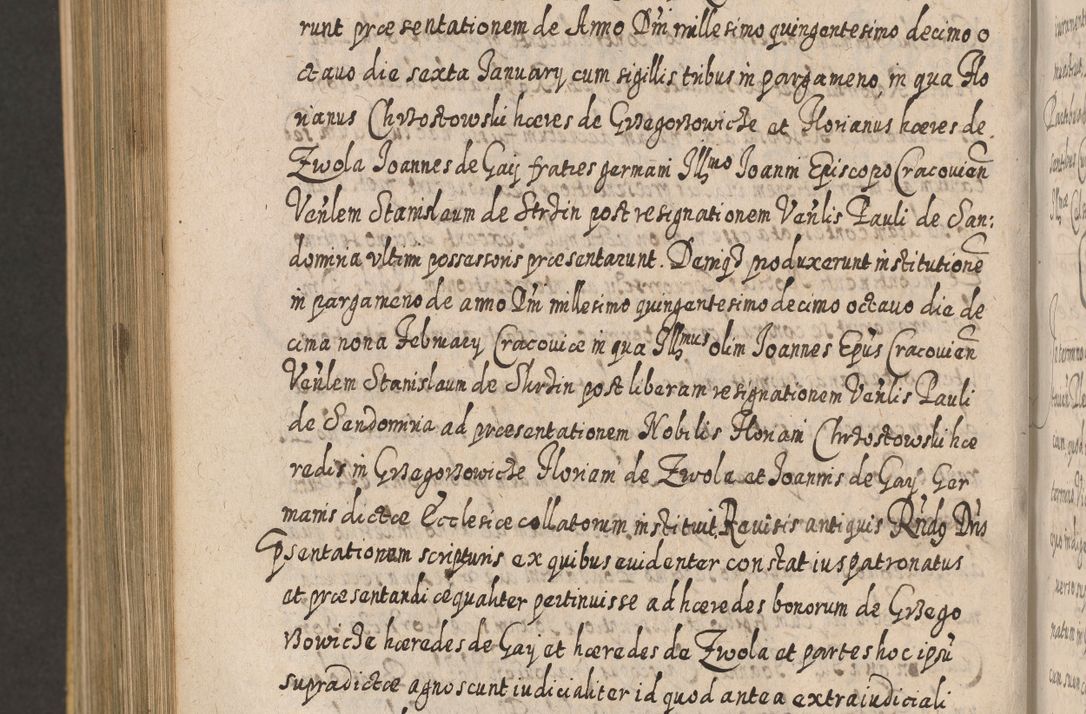 runt præsentationem de Anno Dni millesimo quingentesimo decimo o
ctauo die sexta January cum sigillis tribus in pargameno, in qua Flo
rianus Chrzostowski hæres de Grzegorzowicze et Florianus hæres de
Zwola Joannes de Gaij fratres germani Illmo Joanni Episcopo Cracovien
Venlem Stanislaum de Strzin post resignationem Venlis Pauli de San:
domiria vltim possessoris præsentarunt. Deniq produxerunt institutione
in pargameno de anno Dni millesimo quingentesimo decimo octauo die de
cima nona February Cracoviæ in qua Illmus olim Joannes Epus Cracovien
Venlem Stanislaum de Skrzin post liberam resignationem Venlis Pauli
de Sandomiria ad præsentationem Nobilis Floriani Chrzostowski hæ
redis in Grzegorzowicze Floriani de Zwola et Joannis de Gaij Ger
manis dictæ Ecclesiæ collatorum instituit, Revisis antiquis Rndq Dns
Psentationum scripturis ex quibus euidenter constat ius patronatus
et præsentandi æqualiter pertinuisse ad hæredes bonorum de Grzego
rzowicze hæredes de Gaij et hæredes de Zwola et partes hoc ipsu
supradictæ agnoscunt iudicialiter id quod antea extraiudiciali